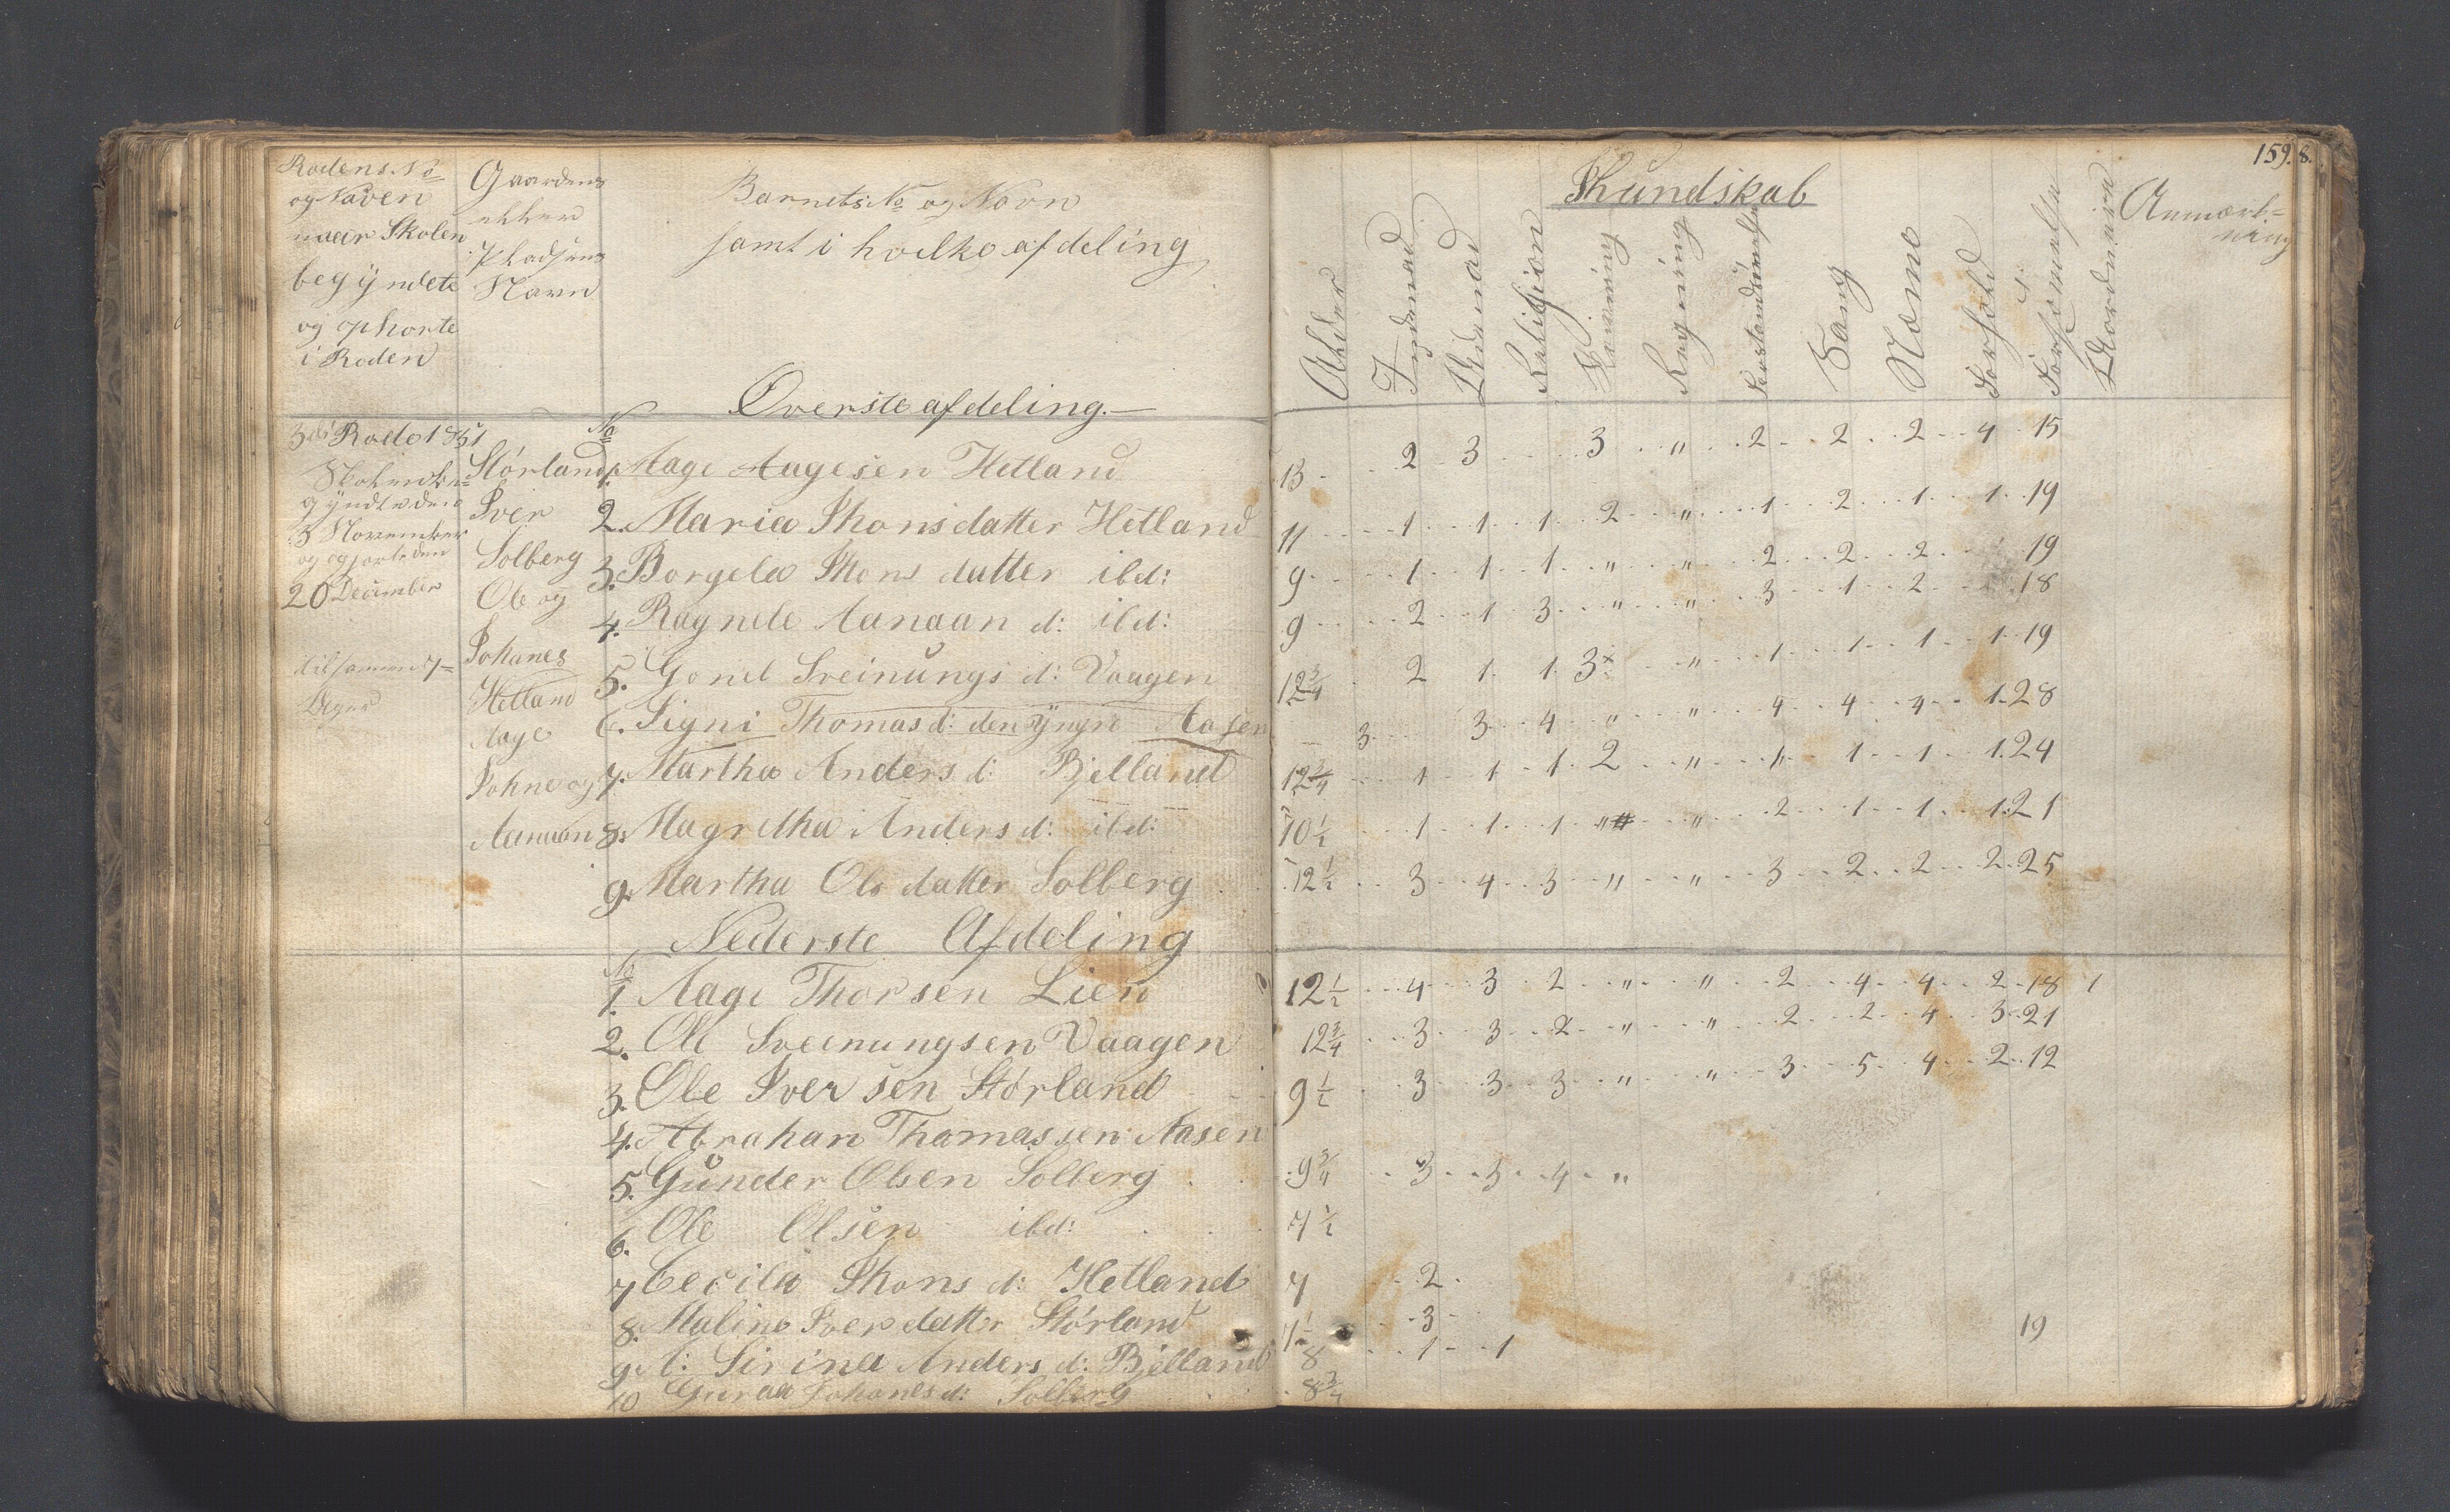 Rodens No
og Naven
naar Skolen
begÿndete
og ophorte
i Roden
Gaardens
ehher
Phadsens
Navn
Barnets No og Navn
samt i hvelke afdeling
Överste afdeling.—
3die Rode 1851
Skolen be=
gÿndte den
3 November
og ogjorte den
20 December
tilsammen 7-
Uger
Störland
Iver
Solberg
Ole og
Johanes
Hetland
Aage
Johne og
Aanaan
No
1. Aage Aagesen Hetland
2. Maria Skonsdatter Hetland
3. Borgela Skons datter ibd:
4. Ragnele Aanaan d: ibd:
5. Gonel Sveinungs d: Vaagen
6. Signi Thomas d: den ÿngre Aasen
7. Martha Anders d: Bjelland
8. Magretha Anders d: ibd:
9. Martha Ols datter Solberg
Nederste Afdeling
No
1. Aage Thorsen Lien
2. Ole Sveinungsen Vaagen
3. Ole Iversen Störland
4. Abrahan Thamassen Aasen
5. Gunder Olsen Solberg
6. Ole Olsen ibd:
7 Cecila Skons d: Hetland
8. Maline Iversdatter Störland
9. A: Sirina Anders d: Bjelland
10 Guraa Johanes d: Solberg
159. 8.
Skundskab
Anmærk=
ning
Ahder
Indenad
Udenad
Relisjion
Skrivning
Regning
Forstandsövelse
Sang
Næme
Forhold
Forsömelse
13 2 3 3 " 2 2 2 4 15
11 1 1 1 2 " 1 2 1 1 19
9 1 1 1 " " 2 2 2 19
9 2 1 3 " " 3 1 2 18
12 3/4 2 1 1 3x " 1 1 1 1 19
3 3 4 " " 4 4 4 1 28
12 3/4 1 1 1 2 " 1 1 1 1 24
10 1/2 1 1 1 " " 2 1 1 1 21
12 1/2 3 4 3 " " 3 2 2 2 25
12 1/2 4 3 2 " " 2 4 4 2 18 1
12 3/4 3 3 2 " " 2 2 4 3 21
9 1/2 3 3 3 " " 3 5 4 2 12
9 3/4 3 3 4 "
7 1/2
7 2
7 1/2 3 19
8 1 1
8 3/4